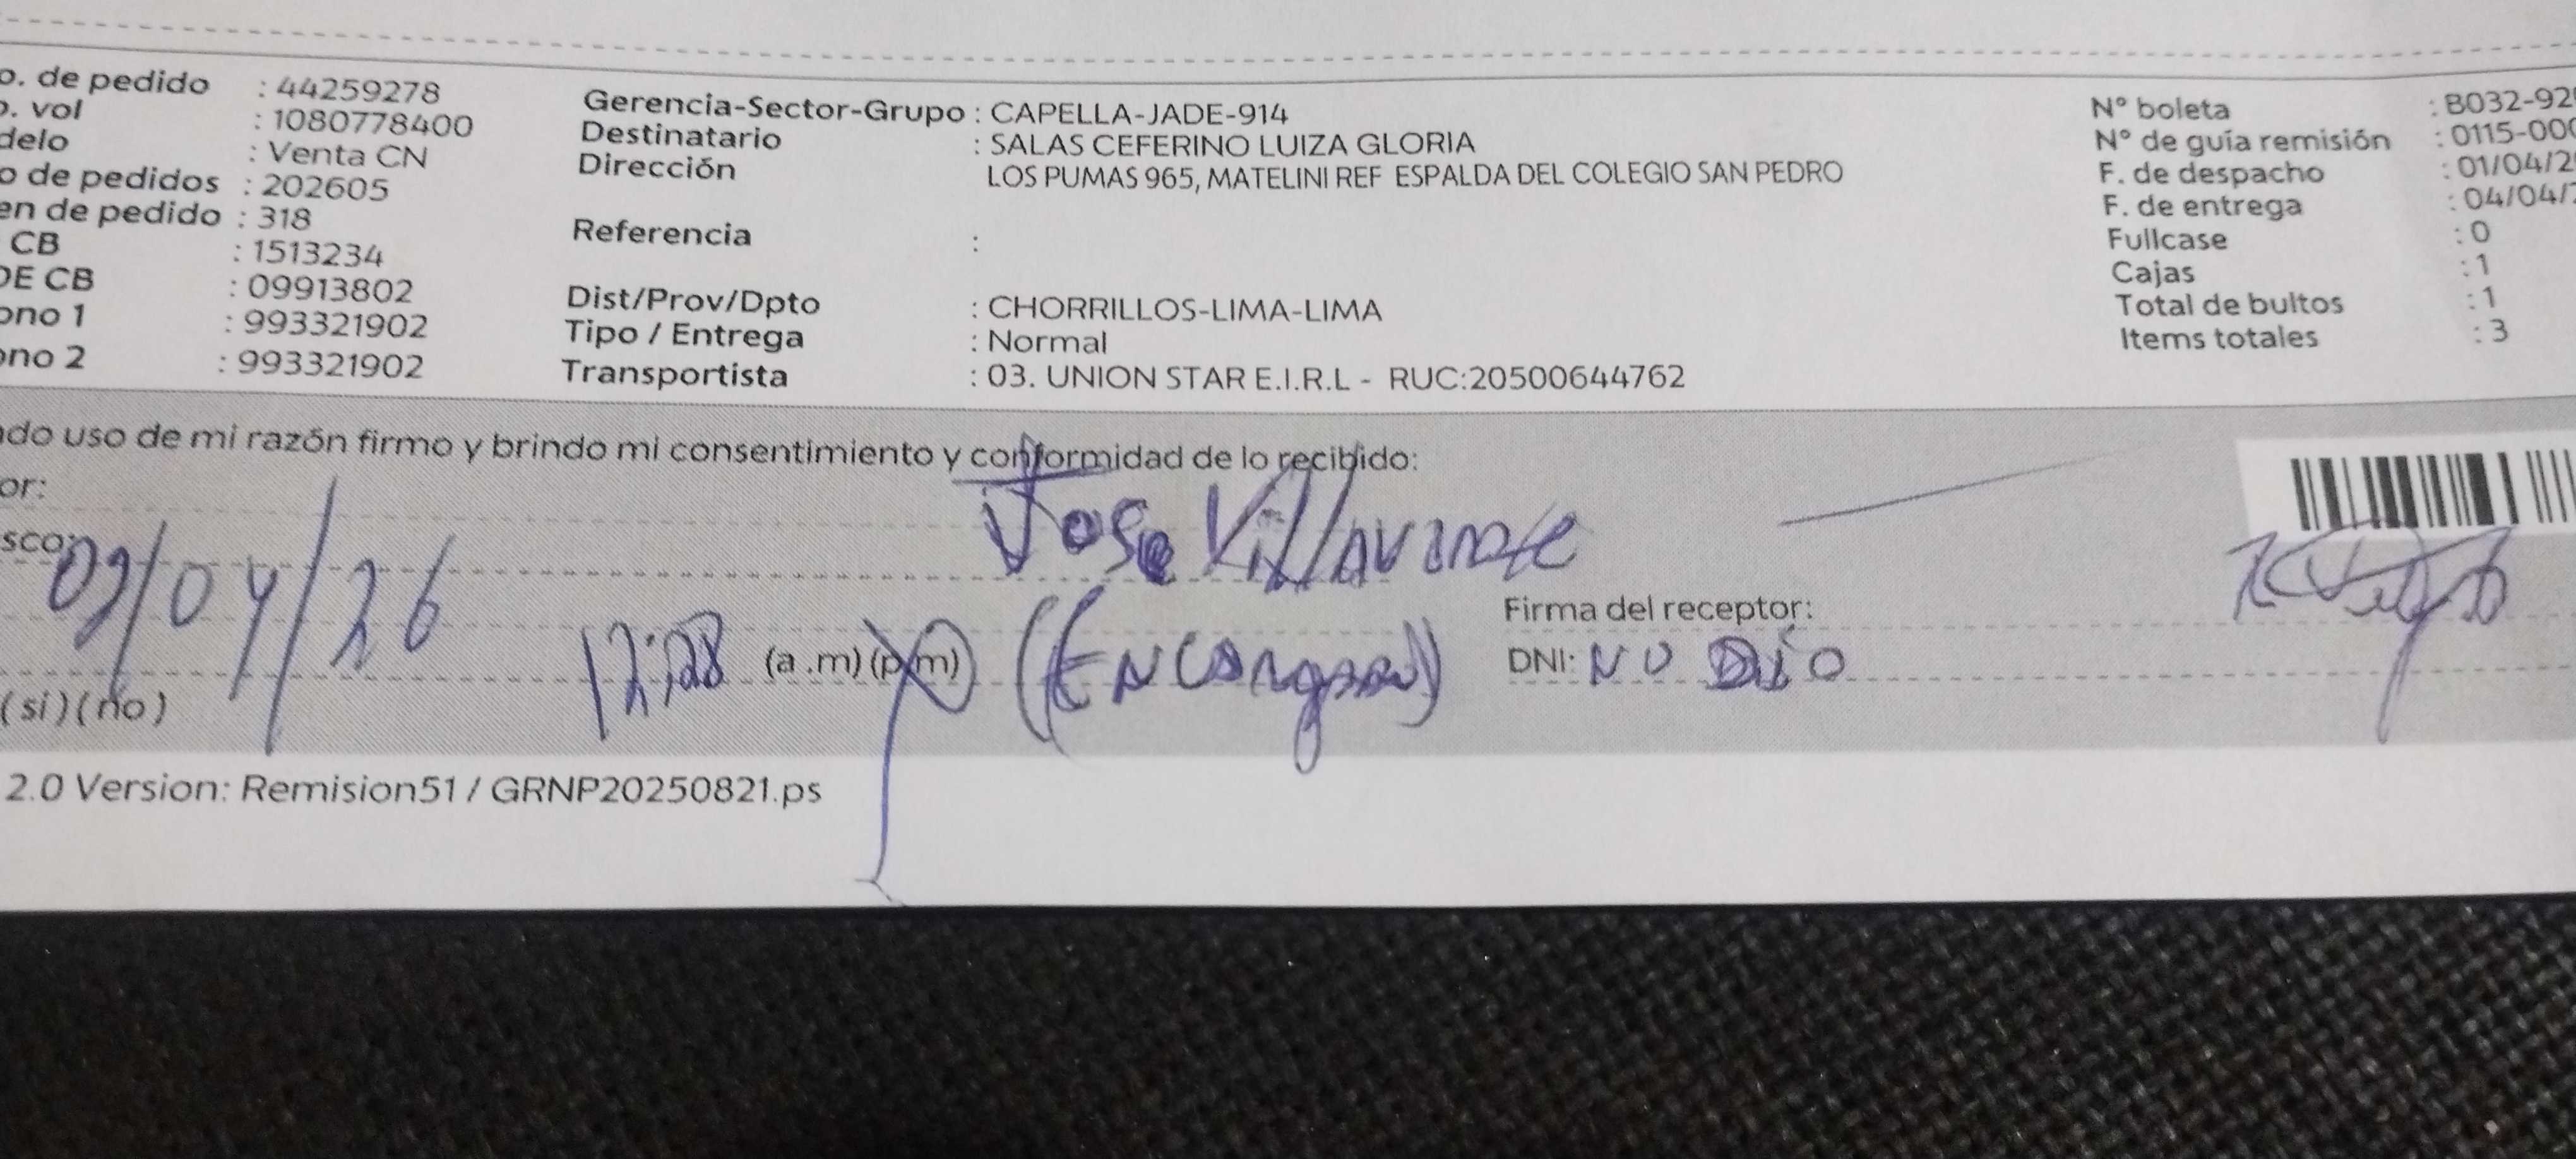 o. de pedido : 44259278
o. vol : 1080778400
delo : Venta CN
o de pedidos : 202605
en de pedido : 318
CB : 1513234
DE CB : 09913802
ono 1 : 993321902
ono 2 : 993321902
Gerencia-Sector-Grupo : CAPELLA-JADE-914
Destinatario : SALAS CEFERINO LUIZA GLORIA
Dirección LOS PUMAS 965, MATELINI REF ESPALDA DEL COLEGIO SAN PEDRO
Referencia :
Dist/Prov/Dpto : CHORRILLOS-LIMA-LIMA
Tipo / Entrega : Normal
Transportista : 03. UNION STAR E.I.R.L - RUC:20500644762
N° boleta : B032-92
N° de guía remisión : 0115-00
F. de despacho : 01/04/2
F. de entrega : 04/04/
Fullcase : 0
Cajas : 1
Total de bultos : 1
Items totales : 3
ndo uso de mi razón firmo y brindo mi consentimiento y conformidad de lo recibido:
or:
Jose
sco:
/04/26
Firma del receptor:
12:28 (a.m) (p.m) DNI: NO DIO
(si) (no)
2.0 Version: Remision51 / GRNP20250821.ps